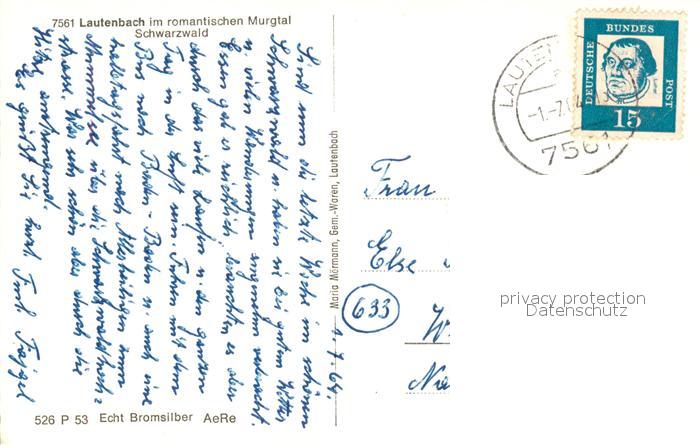 7561 Lautenbach im romantischen Murgtal
Schwarzwald
1.7.64.
Sind nun die letzte Woche im schönen
Schwarzwald u. haben sie bei gutem Wetter
u. vielen Wanderungen angenehm verbracht.
Essen gab es reichlich, brauchten es aber
durch das viele Laufen u. den ganzen
Tag in der Luft sein. Fuhren mit dem
Bus nach Baden-Baden u. auch eine
nach Allerheiligen zum
Mummelsee über die Schwarzwaldhoch=
strasse. War sehr schön aber durch die
Hitze anstrengend.
Es grüßt Sie
526 P 53 Echt Bromsilber AeRe
Maria Mörmann, Gem.-Waren, Lautenbach
Frau
Else
633
W
Nie
LAUTEN
-1.-7.64
7561
DEUTSCHE BUNDES POST
15
privacy protection
Datenschutz